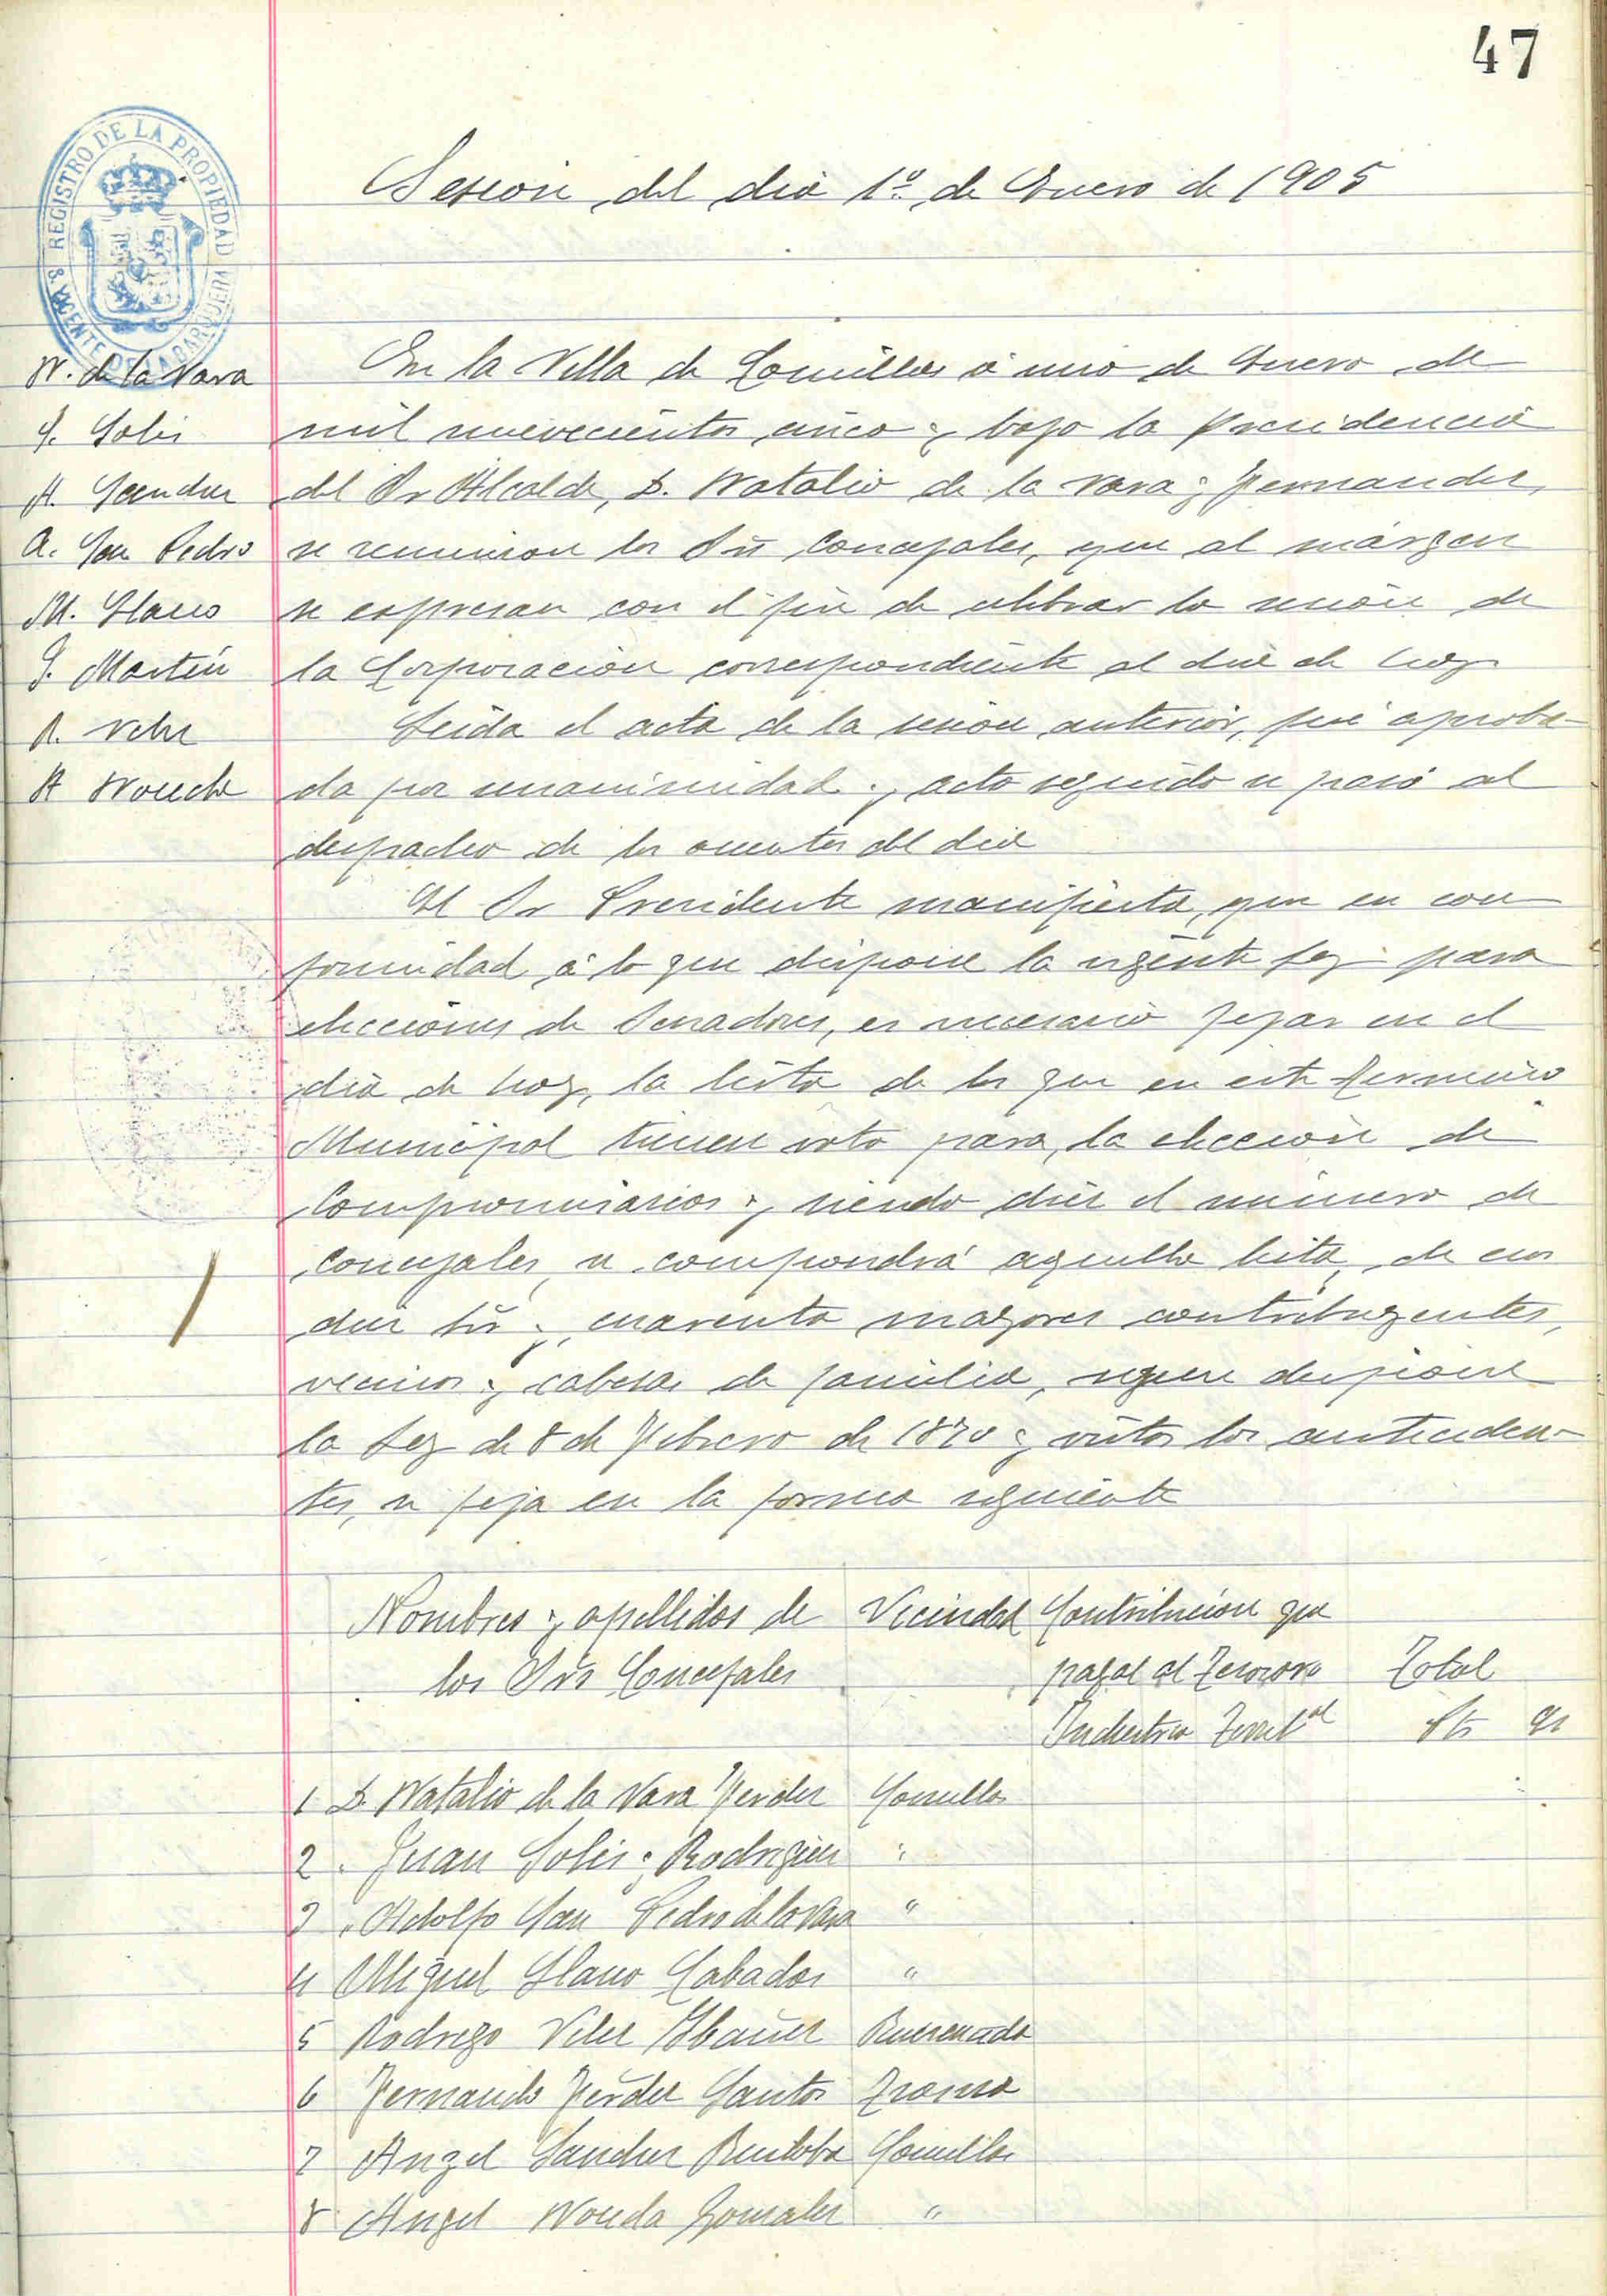 47
REGISTRO DE LA PROPIEDAD
S. VICENTE DE LA BARQUERA
Sesion del dia 1º de Enero de 1905
N. de la Vara
J. Solis
A. Sanchez
A. San Pedro
M. Llano
J. Martin
R. Velez
A Noceda
En la Villa de Comillas á uno de Enero de
mil novecientos cinco y bajo la Presidencia
del Sr Alcalde, D. Natalio de la Vara y Fernandez,
se reunieron los Srs Concejales, que al márgen
se espresan con el fin de celebrar la sesión de
la Corporación correspondiente al dia de hoy
Leida el acta de la sesion anterior, fué aproba-
da por unanimidad y acto seguido se pasó al
despacho de los asuntos del dia
El Sr Presidente manifiesta, que en con
formidad á lo que dispone la vigente ley para
elecciones de Senadores, es necesario fijar en el
dia de hoy, la lista de los que en este termino
Municipal tienen voto para la elección de
Compromisarios y siendo diez el número de
concejales, se compondrá aquella lista, de esos
diez Srs y cuarenta mayores contribuyentes,
vecinos y cabezas de familia, segun dispone
la Ley de 8 de Febrero de 1870 y vistos los anteceden-
tes, se fija en la forma siguiente
Nombres y apellidos de Vecindad Contribución que
los Srs Concejales pagan al Tesoro Total
Industria Territal Pts Cs
1 D. Natalio de la Vara Fernder Comillas
2 " Juan Solis y Rodriguez "
3 " Adolfo San Pedro de la Vara "
4 Miguel Llano Cabados "
5 Rodrigo Velez Ibañez Ruisenada
6 Fernando Fernder Santos Trasvia
7 Angel Sanchez Ruiloba Comillas
8 Angel Noceda Gonzalez "